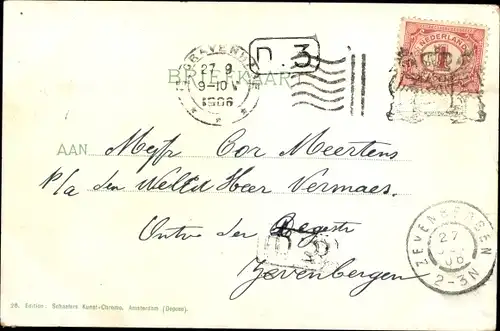 'SGRAVENHAGE
27.9
9-10V
1906
D. 3
NEDERLAND
BRIEFKAART
AAN Mejfr Cor Meertens
p/a den WelEd Heer Vermaes.
D 3
Zevenbergen
ZEVENBERGEN
27
06
2-3N
28. Edition: Schaefers Kunst-Chromo, Amsterdam (Depose).